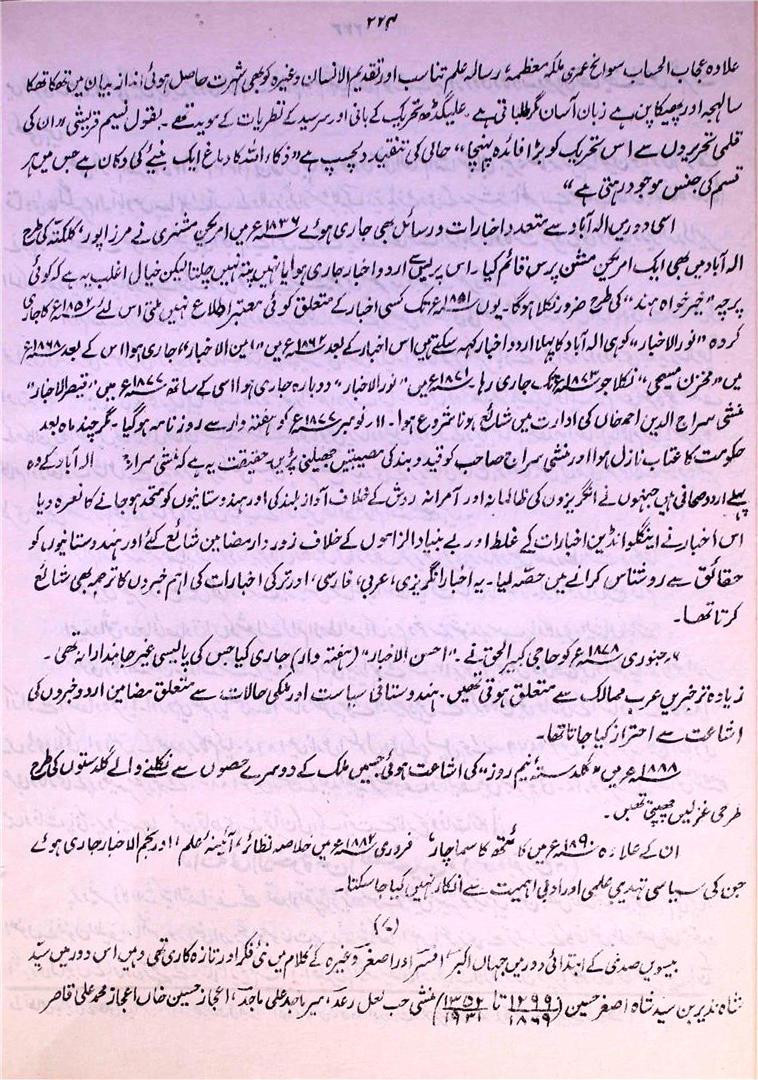 ۲۲۴
علاوہ عجاب الحساب سوانح عمری ملکہ معظمہ، رسالہ علم تناسب اور تقدیم الانسان وغیرہ کو بھی شہرت حاصل ہوئی انداز بیان میں تھکا تھکا
سا لہجہ اور پھیکا پن ہے زبان آسان مگر طلباتی ہے۔ علیگڑھ تحریک کے بانی اور سرسید کے نظریات کے موید تھے۔ بقول نسیم قریشی "ان کی
قلمی تحریروں سے اس تحریک کو بڑا فائدہ پہنچا" حالی کی تنقید دلچسپ ہے "ذکاء اللہ کا دماغ ایک بنیئے کی دکان ہے جس میں ہر
قسم کی جنس موجود رہتی ہے"
اسی دور میں الہ آباد سے متعدد اخبارات و رسائل بھی جاری ہوئے ۱۸۳۶ء میں امریکن مشنری نے مرزا پور، کلکتہ کی طرح
الہ آباد میں بھی ایک امریکن مشن پرس قائم کیا۔ اس پریس سے اردو اخبار جاری ہوا یا نہیں پتہ نہیں چلتا لیکن خیال اغلب یہ ہے کہ کوئی
پرچہ "خیر خواہ ہند" کی طرح ضرور نکلا ہوگا۔ یوں ۱۸۵۱ء تک کسی اخبار کے متعلق کوئی معتبر اطلاع نہیں ملتی اس لئے ۱۸۵۲ء کا جاری
کردہ "نور الاخبار" کو ہی الہ آباد کا پہلا اردو اخبار کہہ سکتے ہیں اس اخبار کے بعد ۱۸۶۲ء میں "امین الاخبار" جاری ہوا اس کے بعد ۱۸۶۸ء
میں "مخزن مسیحی" نکلا جو ۱۸۷۳ء تک جاری رہا۔ ۱۸۷۱ء میں "نور الاخبار" دوبارہ جاری ہوا اسی کے ساتھ ۱۸۷۷ء میں "قیصر الاخبار"
منشی سراج الدین احمد خاں کی ادارت میں شائع ہونا شروع ہوا۔ ۱۱ نومبر ۱۸۷۷ء کو ہفتہ وار سے روزنامہ ہوگیا۔ مگر چند ماہ بعد
حکومت کا عتاب نازل ہوا اور منشی سراج صاحب کو قید و بند کی مصیبتیں جھیلنی پڑیں۔ حقیقت یہ ہے کہ منشی سراج الہ آباد کے وہ
پہلے اردو صحافی ہیں جنہوں نے انگریزوں کی ظالمانہ اور آمرانہ روش کے خلاف آواز بلند کی اور ہندوستانیوں کو متحد ہو جانے کا نعرہ دیا
اس اخبار نے اینگلو انڈین اخبارات کے غلط اور بے بنیاد الزاموں کے خلاف زور دار مضامین شائع کئے اور ہندوستانیوں کو
حقائق سے روشناس کرانے میں حصہ لیا۔ یہ اخبار انگریزی، عربی، فارسی، اور ترکی اخبارات کی اہم خبروں کا ترجمہ بھی شائع
کرتا تھا۔
۶ جنوری ۱۸۷۸ء کو حاجی کبیر الحق نے۔ "احسن الاخبار" (ہفتہ وار) جاری کیا جس کی پالیسی غیر جاندارانہ تھی۔
زیادہ تر خبریں عرب ممالک سے متعلق ہوتی تھیں۔ ہندوستانی سیاست اور ملکی حالات سے متعلق مضامین اردو خبروں کی
اشاعت سے احتراز کیا جاتا تھا۔
۱۸۸۸ء میں "گلدستہ نیم روز" کی اشاعت ہوئی جسمیں ملک کے دوسرے حصوں سے نکلنے والے گلدستوں کی طرح
طرحی غزلیں چھپتی تھیں۔
ان کے علاوہ ۱۸۹۰ء میں کائستھ کا سماچار، فروری ۱۸۸۲ء میں خلاصہ نظائر، آئینہ علم، اور نجم الاخبار جاری ہوئے
جن کی سیاسی تہذیبی علمی اور ادبی اہمیت سے انکار نہیں کیا جا سکتا۔
(۷)
بیسویں صدی کے ابتدائی دور میں جہاں اکبر افسر اور اصغر وغیرہ کے کلام میں نئی فکر اور تازہ کاری تھی وہیں اس دور میں سید
شاہ نذیر بن سید شاہ اصغر حسین (۱۲۹۹/۱۸۶۹ تا ۱۳۵۲/۱۹۳۱) منشی حب لعل رعد، میر ماجد علی ماجد، اعجاز حسین خاں اعجاز محمد علی قاصر